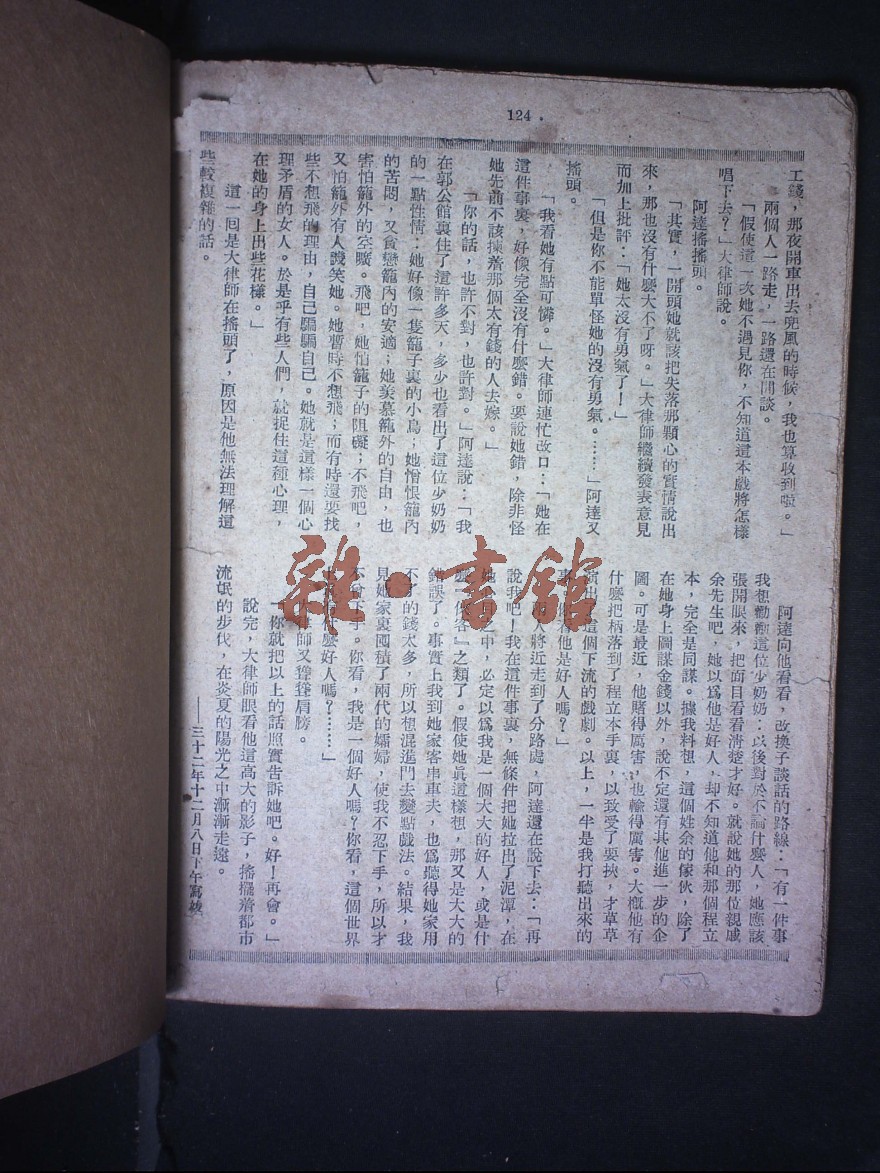 124
工錢，那夜開車出去兜風的時候，我也算收到啦。」
兩個人一路走，一路還在閒談。
「假使這一次她不遇見你，不知道這本戲將怎樣
唱下去？」大律師說。
阿達搖搖頭。
「其實，一開頭她就該把失落那顆心的實情說出
來，那也沒有什麼大不了呀。」大律師繼續發表意見
而加上批評：「她太沒有勇氣了！」
「但是你不能單怪她的沒有勇氣。……」阿達又
搖頭。
「我看她有點可憐。」大律師連忙改口：「她在
這件事裏，好像完全沒有什麼錯。要說她錯，除非怪
她先前不該揀着那個太有錢的人去嫁。」
「你的話，也許不對，也許對。」阿達說：「我
在郭公館裏住了這許多天，多少也看出了這位少奶奶
的一點性情：她好像一隻籠子裏的小鳥；她憎恨籠內
的苦悶，又貪戀籠內的安適；她羨慕籠外的自由，也
害怕籠外的空曠。飛吧，她怕籠子的阻礙；不飛吧，
又怕籠外有人譏笑她。她暫時不想飛；而有時還要找
些不想飛的理由，自己騙騙自己。她就是這樣一個心
理矛盾的女人。於是乎有些人們，就捉住這種心理，
在她的身上出些花樣。」
這一回是大律師在搖頭了，原因是他無法理解這
些較複雜的話。
阿達向他看看，改換了談話的路線：「有一件事
我想勸勸這位少奶奶：以後對於不論什麼人，她應該
張開眼來，把面目看看清楚才好。就說她的那位親戚
余先生吧，她以爲他是好人，却不知道他和那個程立
本，完全是同謀。據我料想，這個姓余的傢伙，除了
在她身上圖謀金錢以外，說不定還有其他進一步的企
圖。可是最近，他賭得厲害，也輸得厲害。大概他有
什麼把柄落到了程立本手裏，以致受了要挾，才草草
演出了這個下流的戲劇。以上，一半是我打聽出來的
事，你看他是好人嗎？」
人將近走到了分路處，阿達還在說下去：「再
說我吧！我在這件事裏，無條件把她拉出了泥潭，在
她 之中，必定以爲我是一個大大的好人，或是什
麼「俠客」之類了。假使她眞這樣想，那又是大大的
錯誤了。事實上我到她家客串車夫，也爲聽得她家用
不 的錢太多，所以想混進門去變點戲法。結果，我
見她家裏囤積了兩代的孀婦，使我不忍下手，所以才
不曾下手。你看，我是一個好人嗎？你看，這個世界
麼好人嗎？……」
律師又聳聳肩膀。
你就把以上的話照實告訴她吧。好！再會。」
說完，大律師眼看他這高大的影子，搖擺着都市
流氓的步伐，在炎夏的陽光之中漸漸走遠。
——三十二年十二月八日下午寫竣
雜·書館